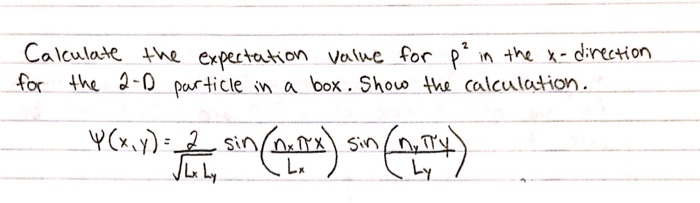 Calculate the expectation value for p² in the x-direction
for the 2-D particle in a box. Show the calculation.
Ψ(x,y) = 2/√(Lx Ly) sin(nxπx/Lx) sin(nyπy/Ly)